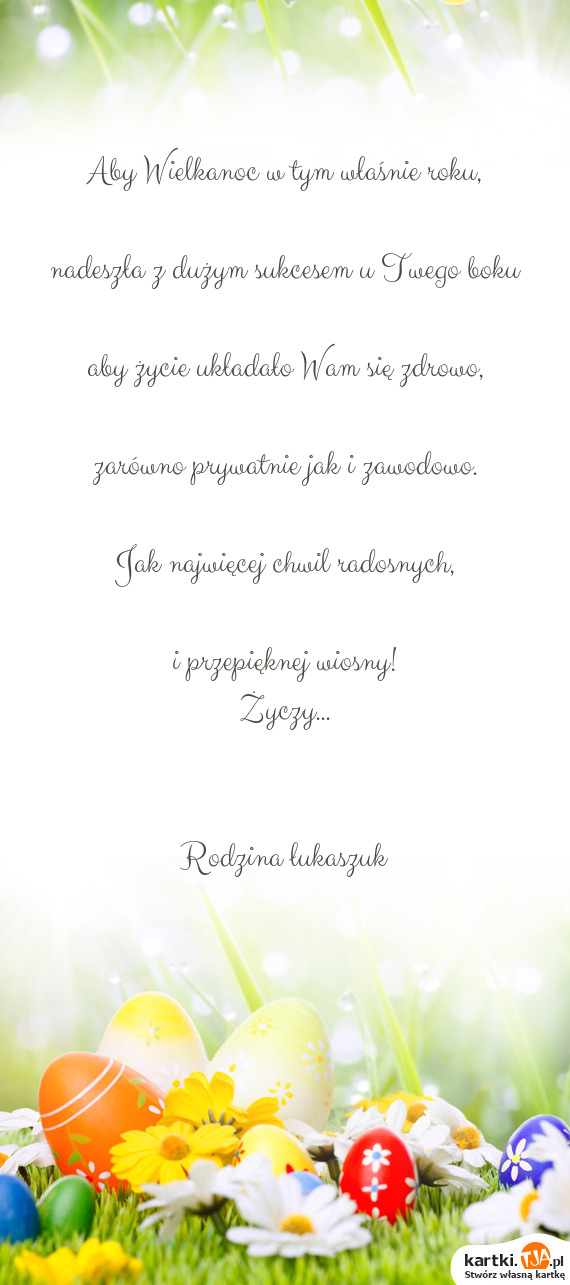 Aby Wielkanoc w tym właśnie roku,
nadeszła z dużym sukcesem u Twego boku
aby życie układało Wam się zdrowo,
zarówno prywatnie jak i zawodowo.
Jak najwięcej chwil radosnych,
i przepięknej wiosny!
Życzy...
Rodzina łukaszuk
kartki.TJA.pl
Stwórz własną kartkę